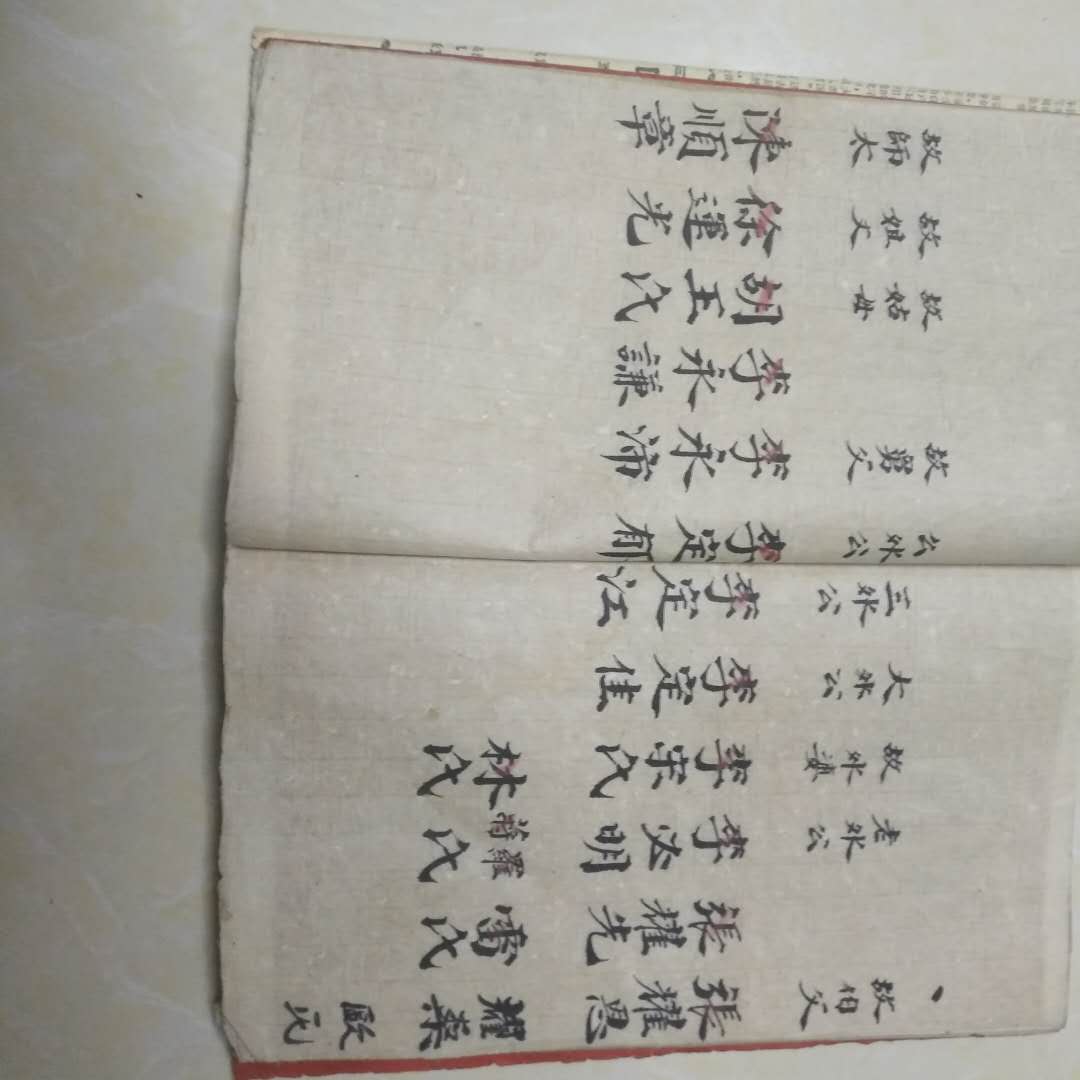 故伯父 張耀恩 耀燊
張耀先 雷氏
老外公 李必明 蔣羅氏
故外婆 李宋氏 林氏
大外公 李定佳
三外公 李定江
么外公 李定郁
故舅父 李永沛
李永謙
故姑母 胡王氏
故姐丈 徐運光
故師太 陳順章